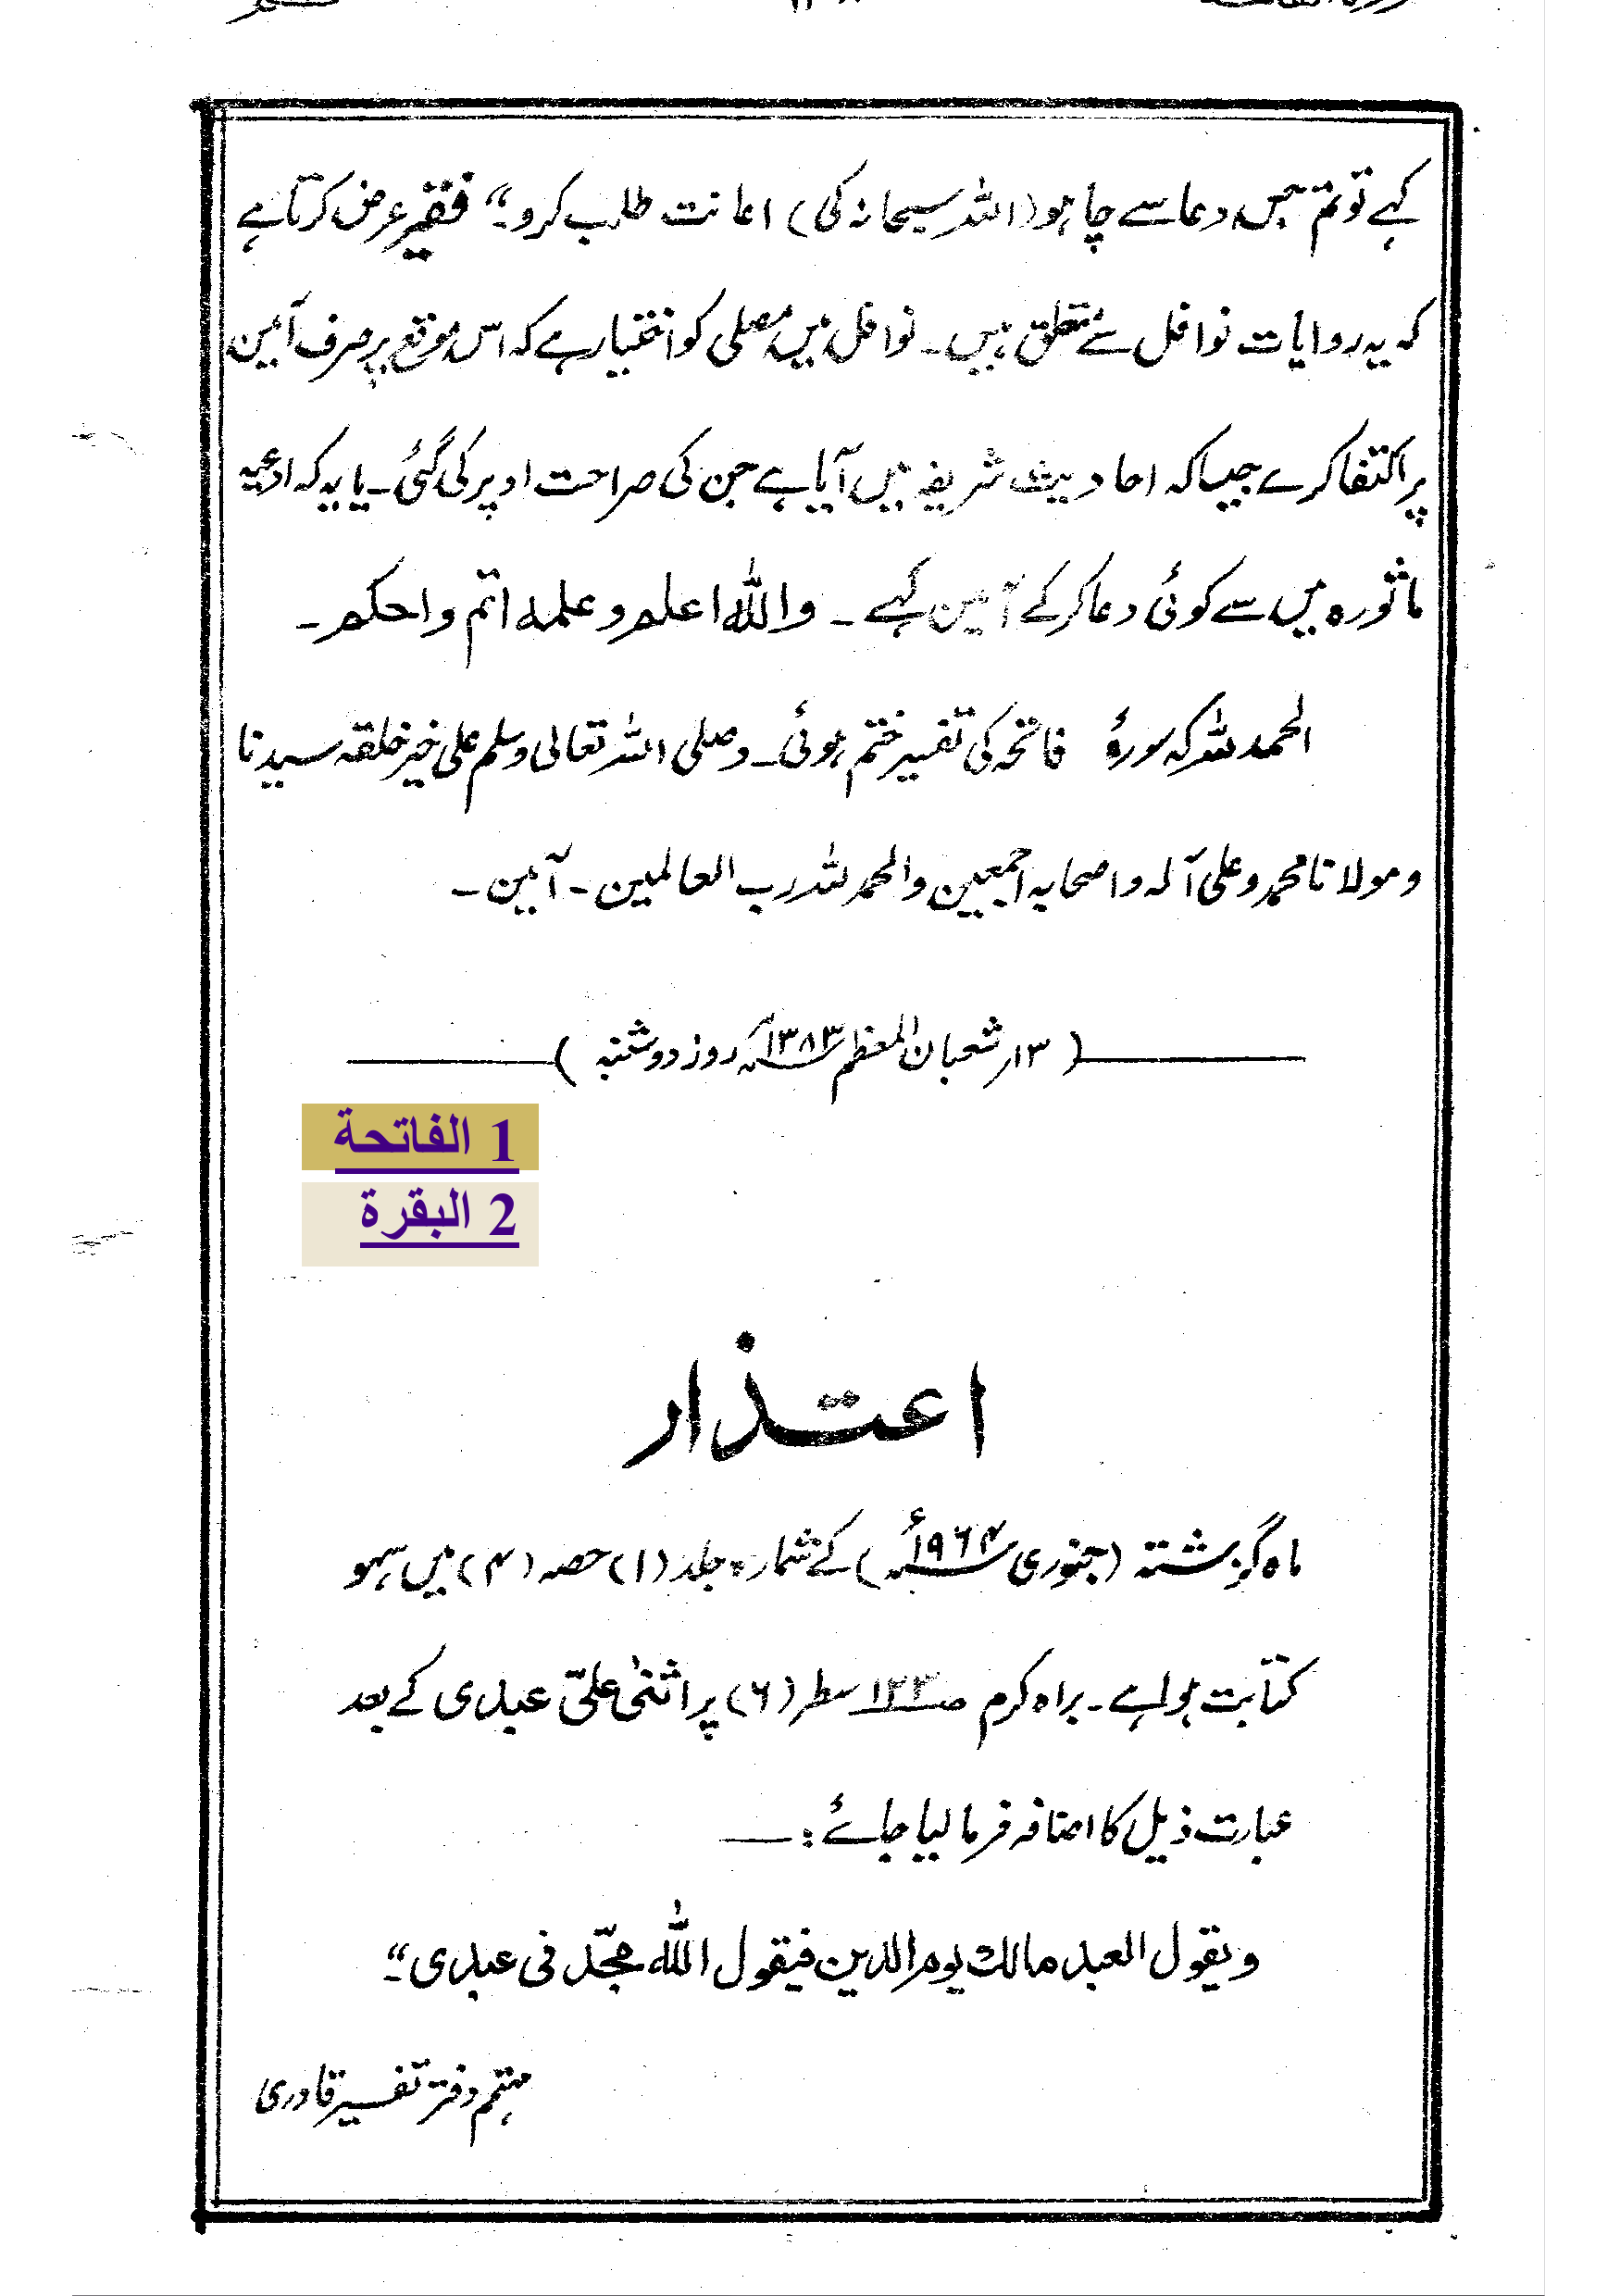 کہے تو تم جس دعا سے چاہو (اللہ سبحانہ کی) اعانت طلب کرو۔“ فقیر عرض کرتا ہے
کہ یہ روایات نوافل سے متعلق ہیں۔ نوافل میں مصلی کو اختیار ہے کہ اس موقع پر صرف آمین
پر اکتفا کرے جیسا کہ احادیث شریفہ میں آیا ہے جن کی صراحت اوپر کی گئی۔ یا یہ کہ ادعیہ
ماثورہ میں سے کوئی دعا کرکے آمین کہے۔ واللہ اعلم وعلمہ اتم واحکم۔
الحمد للہ کہ سورۂ فاتحہ کی تفسیر ختم ہوئی۔ وصلی اللہ تعالی وسلم علی خیر خلقہ سیدنا
ومولانا محمد وعلی آلہ واصحابہ اجمعین والحمد للہ رب العالمین۔ آمین۔
(۱۳؍ شعبان المعظم ۱۳۸۳ھ روز دوشنبہ)
1 الفاتحة
2 البقرة
اعتذار
ماہ گزشتہ (جنوری ۱۹۶۴ء) کے شمارہ جلد (۱) حصہ (۴) میں سہو
کتابت ہوا ہے۔ براہ کرم صـ۱۲۳ سطر (۶) پر اثنیٰ علیّ عبدی کے بعد
عبارت ذیل کا اضافہ فرما لیا جائے:—
ویقول العبد مالک یوم الدین فیقول اللہ مجّد نی عبدی۔“
مہتمم دفتر تفسیر قادری